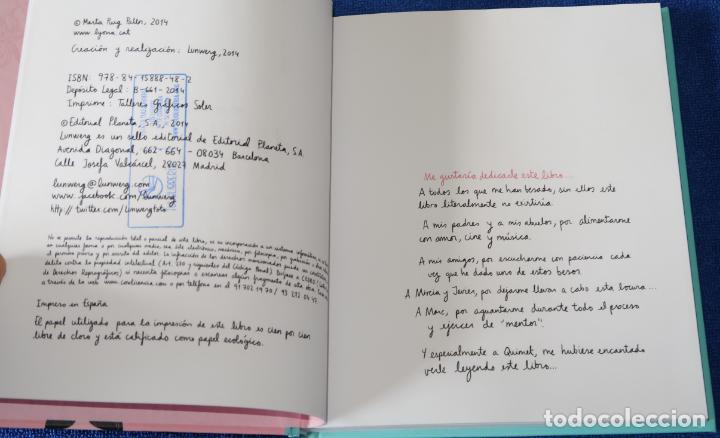 © Marta Puig Pallen, 2014
www.lyona.cat
Creación y realización: Lunwerg, 2014
ISBN: 978-84-15888-48-2
Depósito Legal: B-661-2014
Imprime: Talleres Gráficos Soler
© Editorial Planeta, S.A., 2014
Lunwerg es un sello editorial de Editorial Planeta, S.A.
Avenida Diagonal, 662-664 - 08034 Barcelona
Calle Josefa Valcárcel, 28027 Madrid
lunwerg@lunwerg.com
www.facebook.com/lunwerg
http://twitter.com/lunwergfoto
No se permite la reproducción total o parcial de este libro, ni su incorporación a un sistema informático, ni su
en cualquier forma o por cualquier medio, sea éste electrónico, mecánico, por fotocopia, por grabación u otros
el permiso previo y por escrito del editor. La infracción de los derechos mencionados puede ser constitutiva
delito contra la propiedad intelectual (Art. 270 y siguientes del Código Penal). Diríjase a CEDRO
de Derechos Reprográficos) si necesita fotocopiar o escanear algún fragmento de esta obra.
a través de la web www.conlicencia.com o por teléfono en el 91 702 19 70 / 93 272 04 47.
Impreso en España
El papel utilizado para la impresión de este libro es cien por cien
libre de cloro y está calificado como papel ecológico.
Me gustaría dedicarle este libro...
A todos los que me han besado, sin ellos este
libro literalmente no existiría.
A mis padres y a mis abuelos, por alimentarme
con amor, cine y música.
A mis amigos, por escucharme con paciencia cada
vez que he dado uno de estos besos.
A Marcia y Javier, por dejarme llevar a cabo esta locura...
A Marc, por aguantarme durante todo el proceso
y ejercer de "mentor".
Y especialmente a Quimet, me hubiese encantado
verle leyendo este libro...
todocoleccion.net